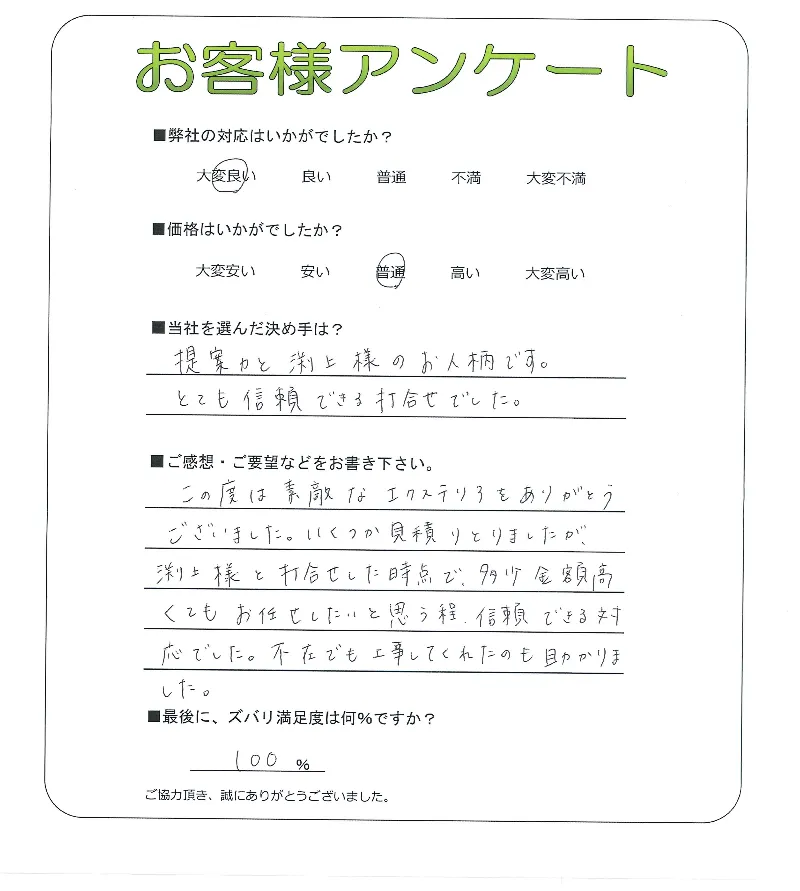 お客様アンケート
■弊社の対応はいかがでしたか？
大変良い 良い 普通 不満 大変不満
■価格はいかがでしたか？
大変安い 安い 普通 高い 大変高い
■当社を選んだ決め手は？
提案力と渕上様のお人柄です。
とても信頼できる打合せでした。
■ご感想・ご要望などをお書き下さい。
この度は素敵なエクステリアをありがとう
ございました。いくつか見積りとりましたが、
渕上様と打合せした時点で、多少金額高
くてもお任せしたいと思う程、信頼できる対
応でした。不在でも工事してくれたのも助かりま
した。
■最後に、ズバリ満足度は何％ですか？
100 ％
ご協力頂き、誠にありがとうございました。